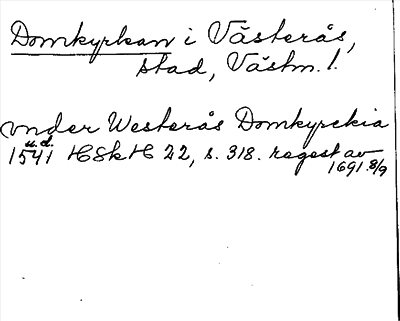 Domkyrkan i Västerås,
stad, Västm. l.
vnder Westerås Domkyrckia
u.d.
1541 HSkH 22, s. 318. regest av
1691 8/9